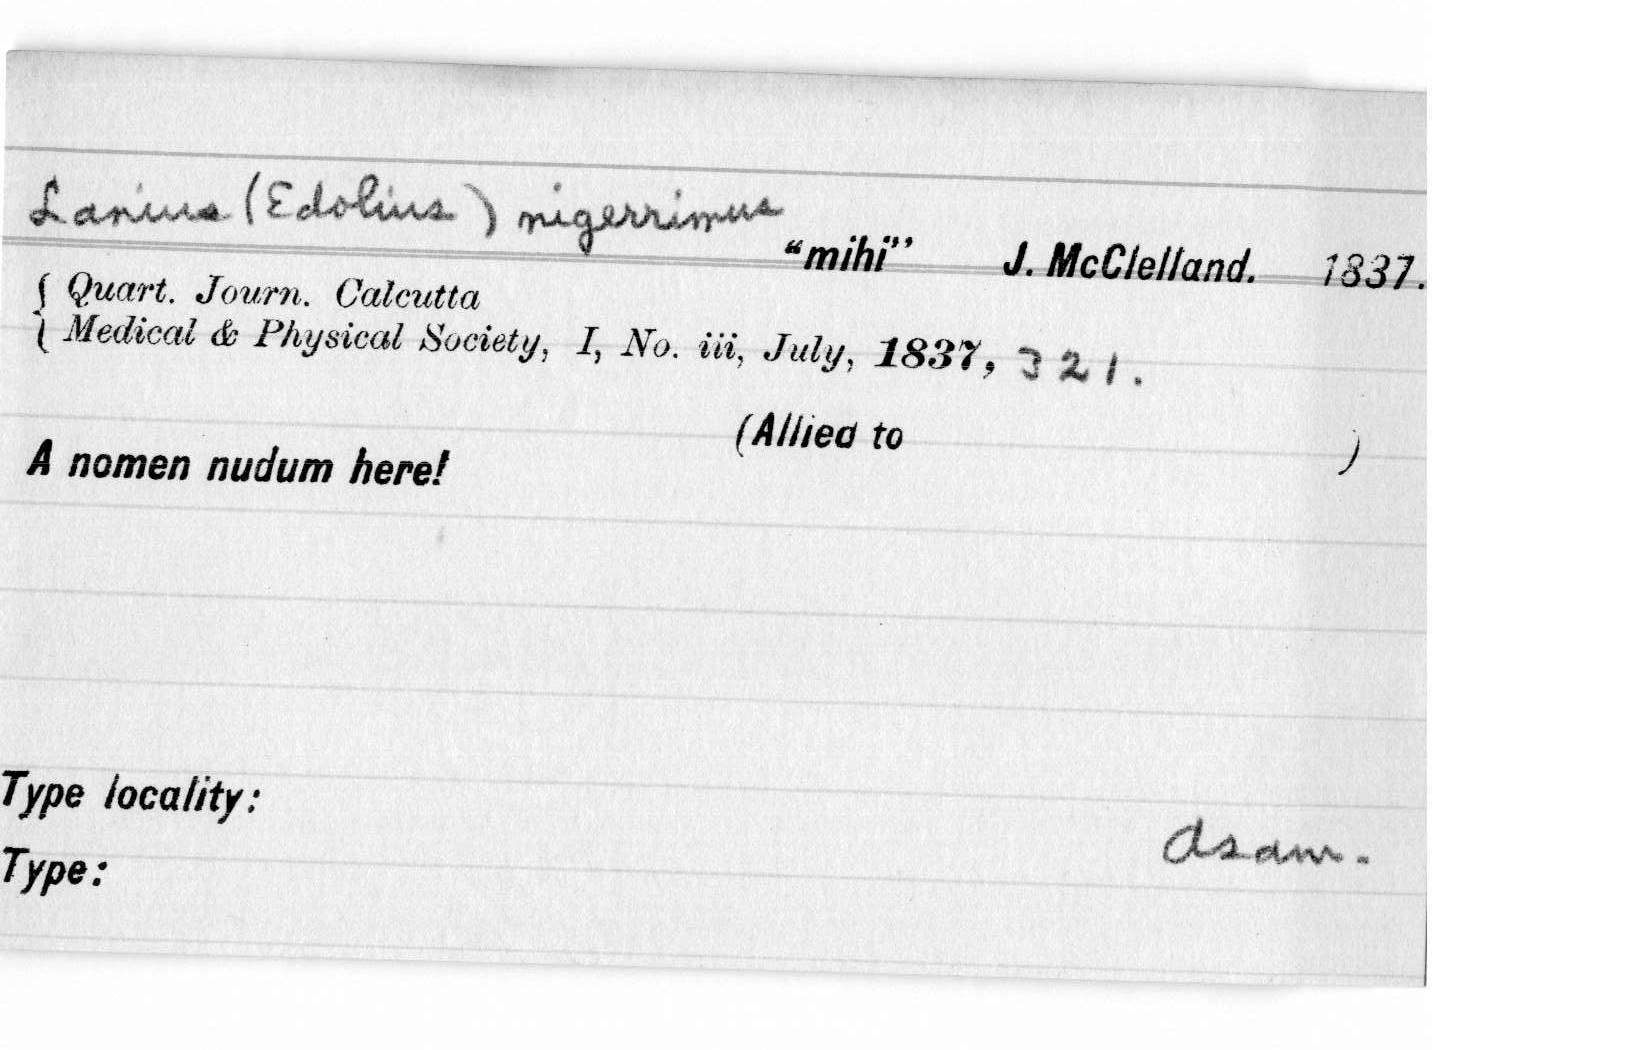 Lanius (Edolius) nigerrimus
"mihi" J. McClelland. 1837.
{ Quart. Journ. Calcutta
{ Medical & Physical Society, I, No. iii, July, 1837, 321.
(Allied to )
A nomen nudum here!
Type locality:
Asam.
Type: